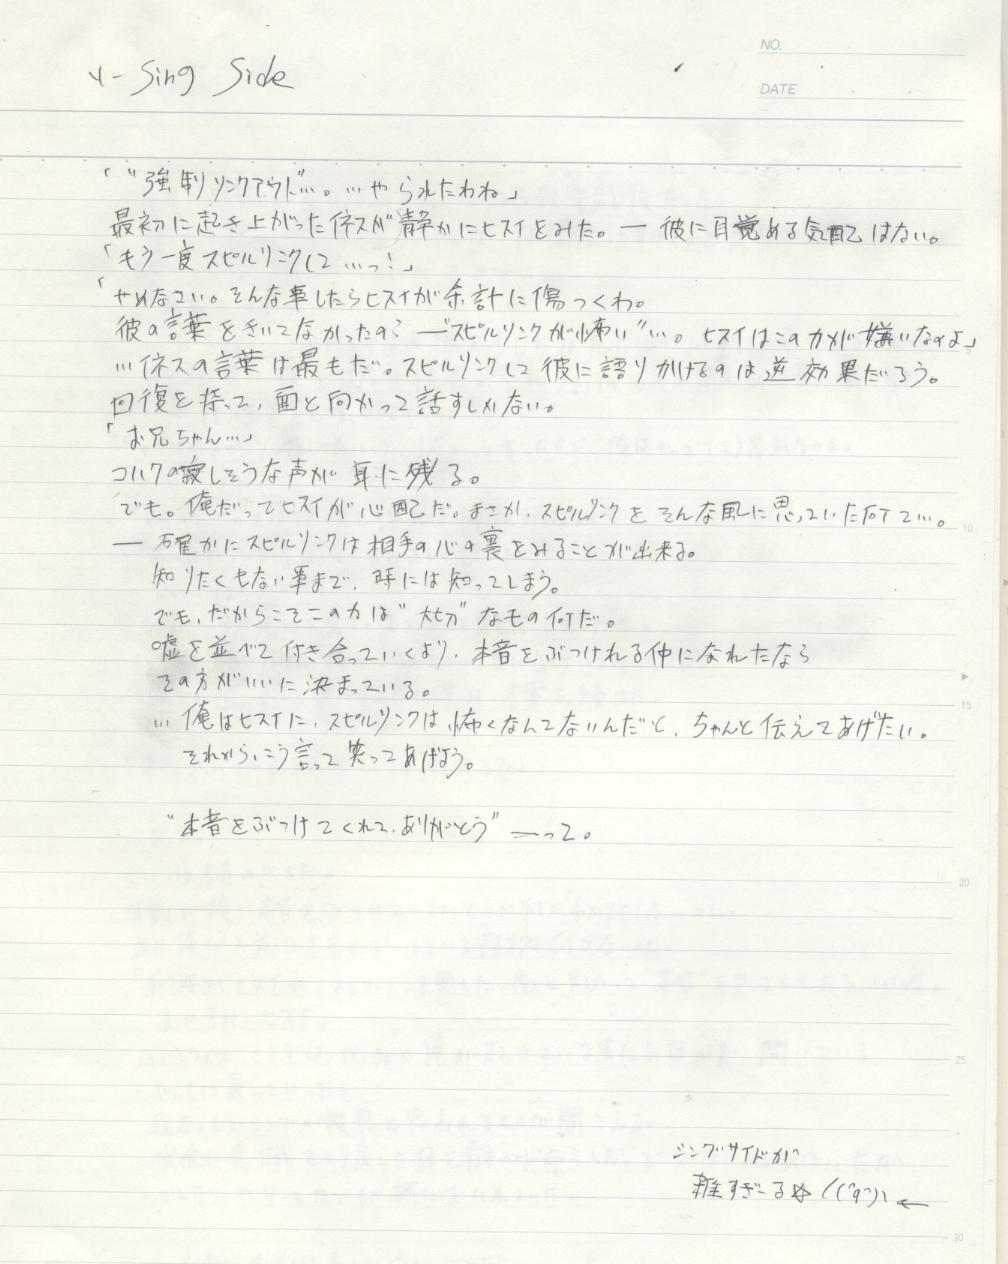 NO.
DATE
4- Sing Side
「“強制リンクアウト”…。…やられたわね」
最初に起き上がったイネスが静かにヒスイをみた。― 彼に目覚める気配はない。
「もう一度スピルリンクして…っ！」
「やめなさい。そんな事したらヒスイが余計に傷つくわ。
彼の言葉をきいてなかったの？ ―“スピルリンクが怖い”…。ヒスイはこの力が嫌いなのよ」
…イネスの言葉は最もだ。スピルリンクして彼に語りかけるのは逆効果だろう。
回復を待って、面と向かって話すしかない。
「お兄ちゃん…」
コハクの寂しそうな声が耳に残る。
でも。俺だってヒスイが心配だ。まさか、スピルリンクをそんな風に思っていた何て…。
― 確かにスピルリンクは相手の心の裏をみることが出来る。
知りたくもない事まで、時には知ってしまう。
でも、だからこそこの力は“大切”なもの何だ。
嘘を並べて付き合っていくより、本音をぶつけれる仲になれたなら
その方がいいに決まっている。
… 俺はヒスイに、スピルリンクは怖くなんてないんだと、ちゃんと伝えてあげたい。
それから、こう言って笑ってあげよう。
“本音をぶつけてくれて、ありがとう” ―って。
シングサイドが
雑すぎーる☆ ←
10
15
20
25
30